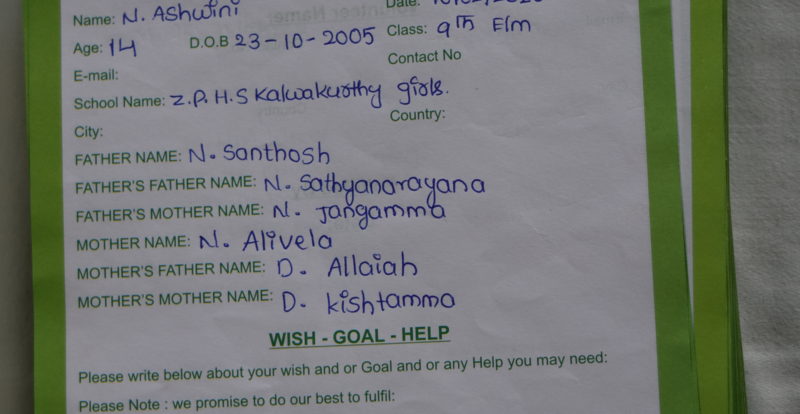 Name: N. Ashwini
Date:
Age: 14 D.O.B 23-10-2005 Class: 9Th E/m
E-mail: Contact No
School Name: Z.P.H.S Kalwakurthy girls.
City: Country:
FATHER NAME: N. Santhosh
FATHER'S FATHER NAME: N. Sathyanarayana
FATHER'S MOTHER NAME: N. Jangamma
MOTHER NAME: N. Alivela
MOTHER'S FATHER NAME: D. Allaiah
MOTHER'S MOTHER NAME: D. kishtamma
WISH - GOAL - HELP
Please write below about your wish and or Goal and or any Help you may need:
Please Note : we promise to do our best to fulfil: